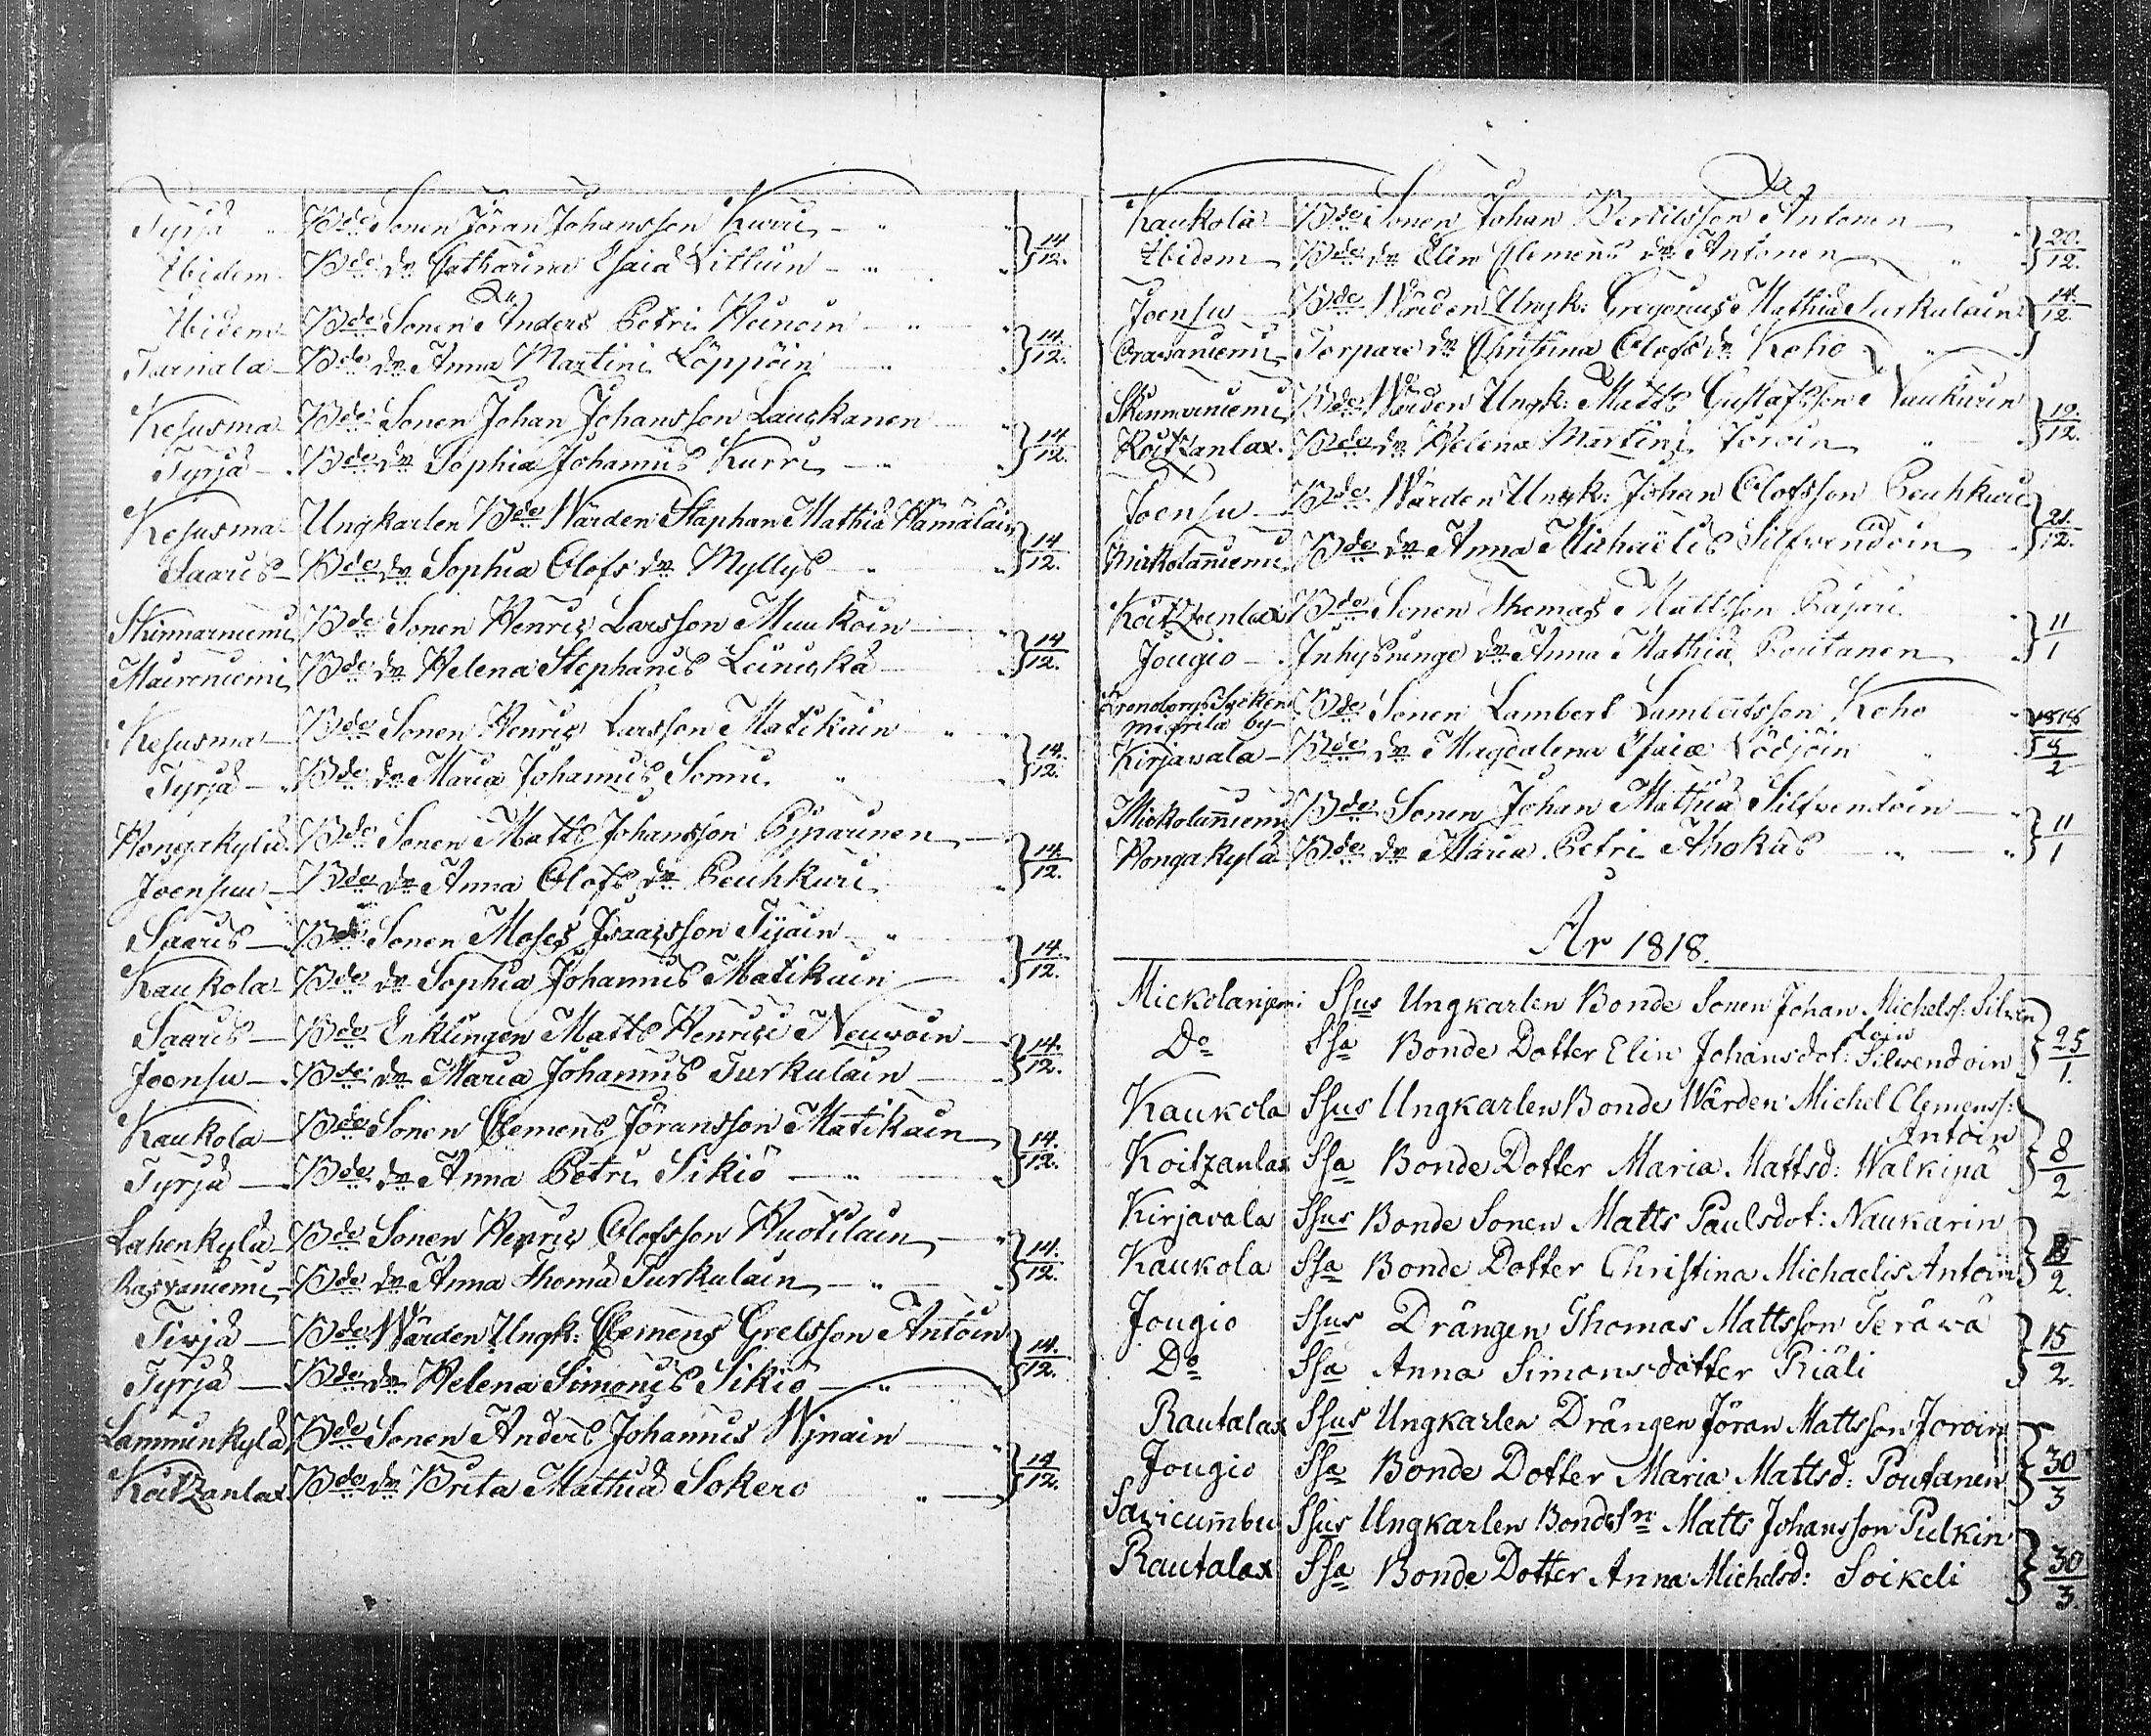 Tyrjä Bde Sonen Jöran Johansson Kurri
Ibidem Bde dr Catharina Esaiæ Litluin 14/12.
Ibidem Bde Sonen Anders Petri Heinoin
Tarnala Bde dr Anna Martini Löppöin 14/12.
Kesusma Bde Sonen Johan Johansson Lauskanen
Tyrjä Bde dr Sophia Johannis Kurri 14/12.
Kesusma Ungkarlen Bde Wärden Staphan Mathiæ Hämäläin
Saaris Bde dr Sophia Olofs dr Myllys 14/12.
Skinnarniemi Bde Sonen Henric Larsson Muukoin
Maireniemi Bde dr Helena Stephanis Leiniskä 14/12.
Kesusma Bde Sonen Henric Larsson Matikain
Tyrjä Bde dr Maria Johannis Sonni 14/12.
Hongakylä Bde Sonen Matts Johansson Pyparinen
Joensuu Bde dr Anna Olofs dr Peuhkuri 14/12.
Saaris Bde Sonen Moses Isaacsson Tijain
Kaukola Bde dr Sophia Johannis Matikain 14/12.
Saaris Bde Enklingen Matts Henrici Neuvoin
Joensu Bde dr Maria Johannis Turkulain 14/12.
Kaukola Bde Sonen Clemens Jöransson Matikain
Tyrjä Bde dr Anna Petri Sikiö 14/12.
Lahenkylä Bde Sonen Henric Olofsson Huotilain
Rasvaniemi Bde dr Anna Thomæ Turkulain 14/12.
Tirjä Bde Wärden Ungk: Clemens Grelsson Antoin
Tyrjä Bde dr Helena Simonis Sikiö 14/12.
Lamminkylä Bde Sonen Anders Johannis Wjnain
Koitzanlax Bde dr Brita Mathiæ Sokero 14/12.
Kaukola Bde Sonen Johan Bertilsson Antonen
Ibidem Bde dr Elin Clemens dr Antonen 20/12.
Joensu Bde Wärden Ungk: Gregorius Mathiæ Turkulain 14/12.
Oravaniemi Torpare dr Christina Olofs dr Koho
Skinnarniemi Bde Wärden Ungk: Matts Gustafsson Naukarin
Koitzanlax Bde dr Helena Martini Joroin 19/12.
Joensu Bde Wärden Ungk: Johan Olofsson Peuhkuri
Mickolanniemi Bde dr Anna Michaëlis Silfvendoin 21/12.
Koitzanlax Bde Sonen Thomas Mattsson Päjäri
Jougio Inhysninge dr Anna Mathiæ Poutanen 11/1
Kronoborgs Sockens
Mikrila by Bde Sonen Lambert Lambertsson Koho
Kirjavala Bde dr Magdalena Esaiæ Lödjöin 2
Mickolanniemi Bde Sonen Johan Mathiæ Silfvendoin
Hongakylä Bde dr Maria Petri Ahokas 11/1
År 1818.
Mickolaniemi Sſus Ungkarlen Bonde Sonen Johan Michelss: Silven
doin
Do Sſa Bonde Dotter Elin Johansdot: Silvendoin 25/1.
Kaukola Sſus Ungkarlen Bonde Wärden Michel Clemenss:
Antoin
Koitzanlax Sſa Bonde Dotter Maria Mattsd: Walkipä 8/2
Kirjavala Sſus Bonde Sonen Matts Paulsdot: Naukarin
Kaukola Sſa Bonde Dotter Christina Michaelis Antoin 2.
Jougio Sſus Drängen Thomas Mattsson Teräwä
Do Sſa Anna Simonsdotter Riäli 15/2.
Rautalax Sſus Ungkarlen Drängen Jöran Mattsson Joroin
Jougio Sſa Bonde Dotter Maria Mattsd: Poutanen 30/3
Savicumbu Sſus Ungkarlen BondeSn Matts Johansson Pulkin
Rautalax Sſa Bonde Dotter Anna Michelsd: Soikeli 30/3.